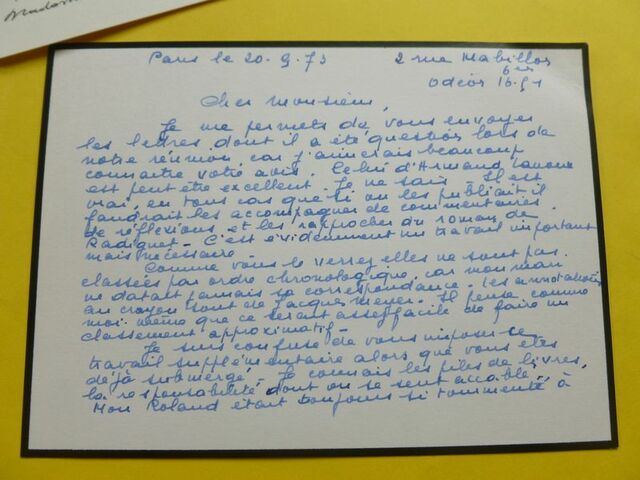 Madame
Paris le 20.9.73 2 rue Mabillon
6em
Odéon 16.51
Cher monsieur,
Je me permets de vous envoyer
les lettres, dont il a été question lors de
notre réunion, car j'aimerais beaucoup
connaître votre avis. Celui d'Armand Lanoux
est peut être excellent. Je ne sais. Il est
vrai, en tous cas que si on les publiait il
faudrait les accompagner de commentaires
de réflexions, et les rapprocher du roman de
Radiguet - C'est évidemment un travail important
mais nécessaire -
Comme vous le verrez, elles ne sont pas
classées par ordre chronologique, car mon mari
ne datait jamais sa correspondance. Les annotations
au crayon sont de Jacques Meyer. Il pense comme
moi même que ce serait assez facile de faire un
classement approximatif -
Je suis confuse de vous imposer ce
travail supplémentaire alors que vous êtes
déjà submergé - Je connais les piles de livres,
la responsabilité dont on se sent accablé,
Mon Roland était toujours si tourmenté à